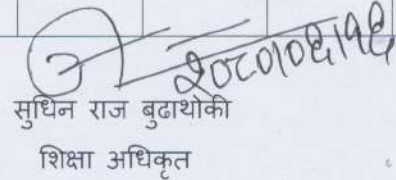 २०८०।०६।१६
सुधिन राज बुढाथोकी
शिक्षा अधिकृत